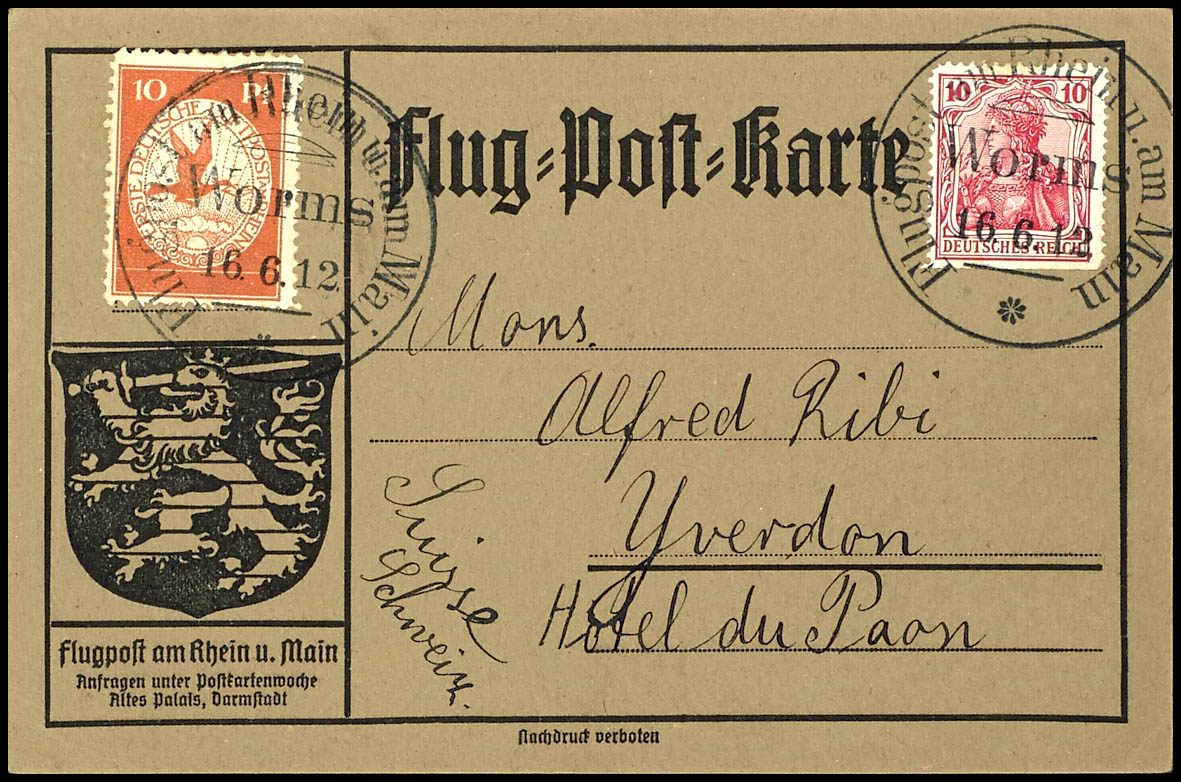 10 Pf
ERSTE DEUTSCHE LUFTPOST
Flugpost am Rhein u. am Main
Worms
16.6.12.
Flug=Post=Karte
10 10
DEUTSCHES REICH
Flugpost am Rhein u. am Main
Worms
16.6.12
Mons.
Alfred Ribi
Yverdon
Hôtel du Paon
Suisse
Schweiz.
Flugpost am Rhein u. Main
Anfragen unter Postkartenwoche
Altes Palais, Darmstadt
Nachdruck verboten